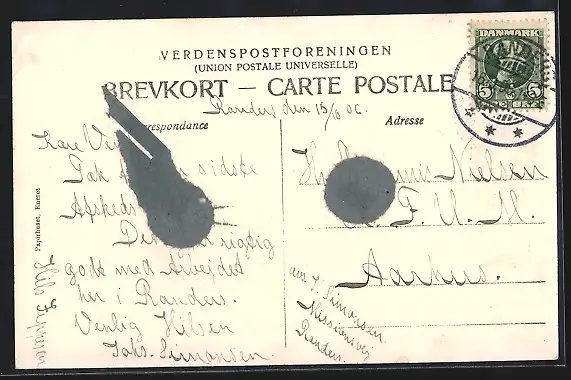 VERDENSPOSTFORENINGEN
(UNION POSTALE UNIVERSELLE)
BREVKORT – CARTE POSTALE
DANMARK
5 5
Randers den 15/6 06.
respondance
Adresse
Kære Ven
Tak sidste
Afsked
De rigtig
godt med Arbejdet
her i Randers.
Venlig Hilsen
Johs. Simonsen
Hils
Papirhuset, Eneret
Hr. Johannes Nielsen
K. F. U. M.
Aarhus.
J. Simonsen
Missionsvej
Randers.